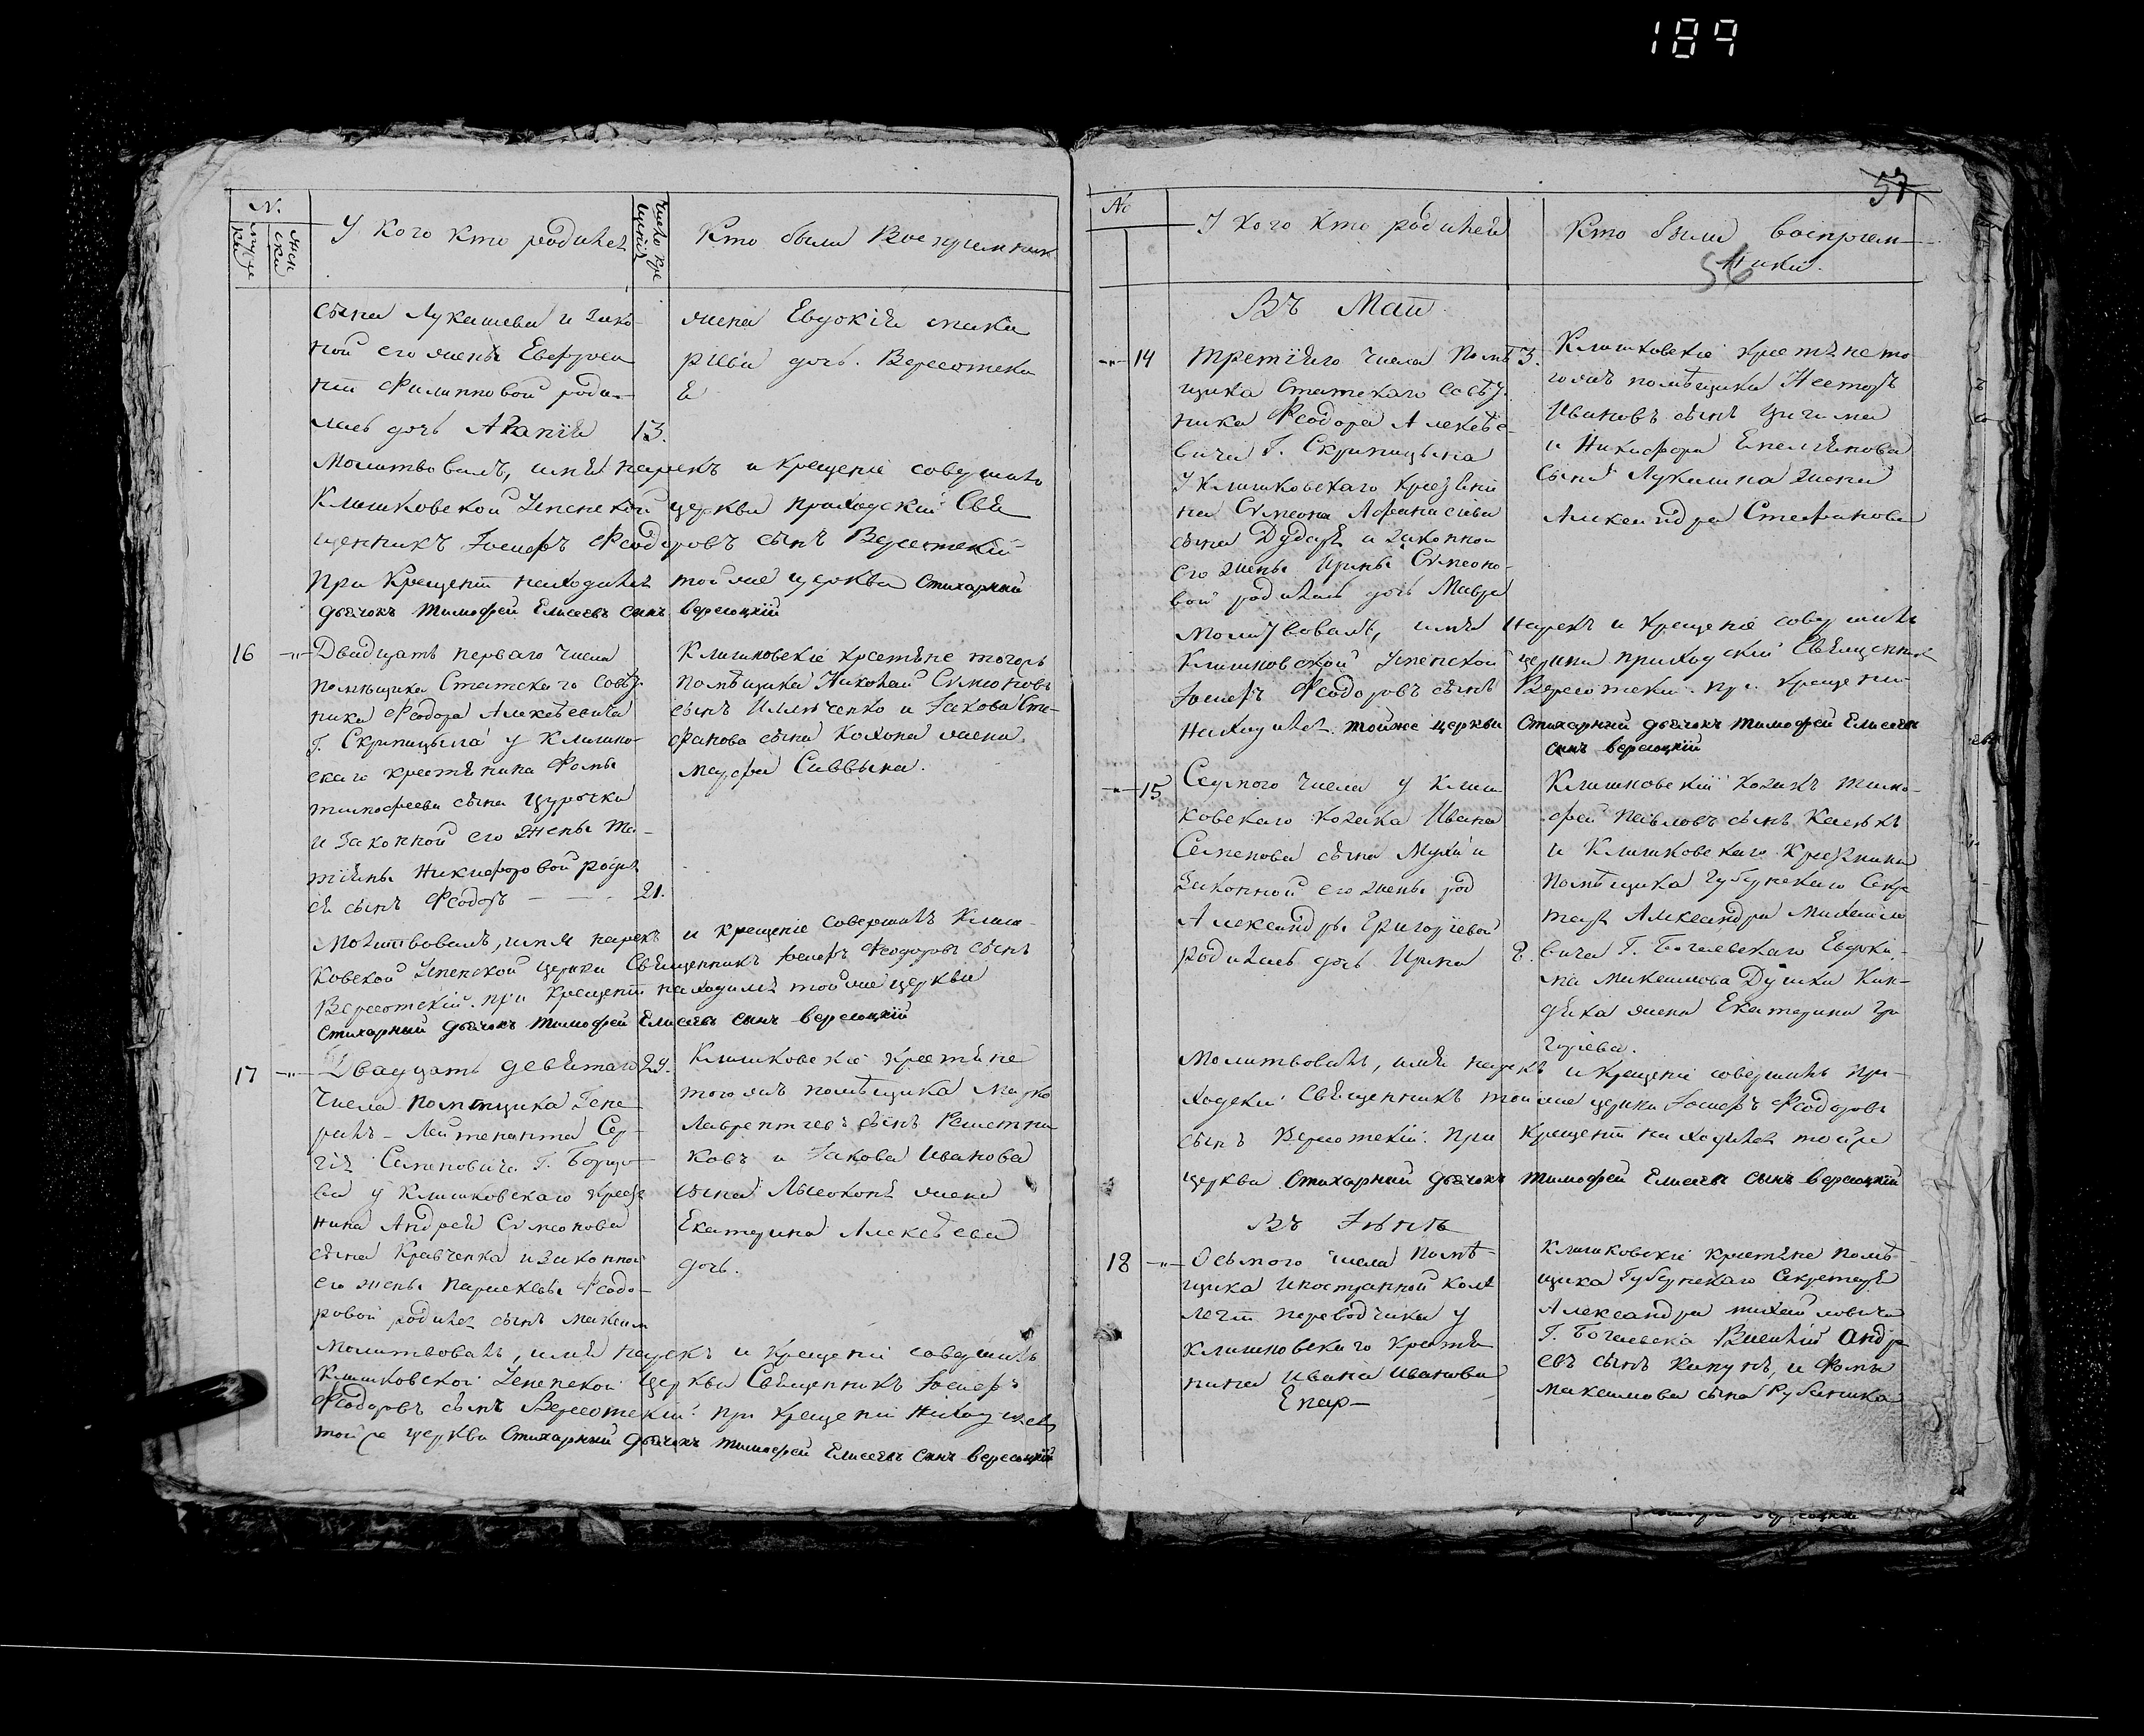 189
57
56
№
мужеска
женска
У кого кто родился
число крещенія
Кто были Восприемник
сына Лукашева и Зако-
ной его жены Евфроси
ніи Филипповой роди-
лась дочь Агапія 13.
жена Евдокія
дочь. Вересотска
я
Молитвовалъ, имя нарекъ и крещеніе совершилъ
Клишковской Успенской церкви приходскій Свя
щенникъ Іосифъ Феодоровъ сынъ Вересотскій
при Крещеніи находился той же церкви Стихарный
дьячокъ Тимофей Елисеевъ сынъ вересоцкій
16 -"- Двадцать перваго числа
помѣщика Статскаго Совѣт
ника Феодора Алексѣевича
Г. Скрипицына у Клишко-
скаго крестянина Фомы
тимофеева сына Цурочки
и Законной его жены Та-
тіяны Никифоровой родил
ся сынъ Феодоръ 21.
Клишковскіе крестяне тогожъ
помѣщика Николай Симеоновъ
сынъ Ильченко и Іакова Сте-
фанова сына жена
Марфа Саввына.
Молитвовалъ, имя нарекъ и крещеніе Совершилъ Клиш-
ковской Успенской церкви Священникъ Іосифъ Феодоровъ сынъ
Вересотскій. при Крещеніи находился той же церкви
Стихарный дьячокъ Тимофей Елисеевъ сынъ вересоцкій
17 -"- Двадцать девятаго 29.
Числа помѣщика Гене
ралъ-Лейтенанта Сер-
гія Семеновича Г. Борщо-
ва у Клишковскаго Крестя
нина Андрея Симеонова
сына Кравченка и Законной
его жены Параскевы Феодо-
ровой родился сынъ Максим
Клишковскіе Крестяне
тогожъ помѣщика Марко
Лаврентіевъ сынъ Решетни
ковъ и Іакова Иванова
сына Лысоконя жена
Екатерина Алексѣева
дочь.
Молитвовалъ, имя нарекъ и Крещеніе совершилъ
Клишковской Успенской Церкви Священникъ Іосифъ
Феодоровъ сынъ Вересотскій при Крещеніи находился
тойже церкви Стихарный дьячокъ Тимофей Елисеевъ сынъ вересоцкій
№
У кого кто родился
Кто были восприем-
ники.
Въ Маи
-"- 14 третіяго числа Помѣ 3.
щика Статскаго Совѣт
ника Феодора Алексѣе-
вича Г. Скрипицына
у Клишковскаго Крестяни
на Симеона Афанасіева
сына Дударя и законной
его жены Ирины Симеоно-
вой родилась дочь Мавра
Клишковскіе крестяне то
гожъ помѣщика Несторъ
Ивановъ сынъ
и Никифора Емелянова
сына Лукашпа жена
Александра Стефанова
Молитвовалъ, имя Нарекъ и крещеніе совершилъ
Клишковской Успенской церкви приходскій Священник
Іосифъ Феодоровъ сынъ Вересотскій. при крещеніи
находился тойже церкви Стихарный дьячокъ Тимофей Елисеевъ
сынъ вересоцкій
-"- 15 Седмого Числа у Клиш
ковскаго козака Ивана
Семенова сына Мухи и
Законной его жены
Александры Григоріевой
родилась дочь Ирина 8.
Клишковскій козакъ Тимо-
фей Павловъ сынъ
и Клишковскаго Крестянина
помѣщика Губернскаго Секре
таря Александра Михайло
вича Г. Богаевскаго Евдоки-
ма
жена Екатерина Гри
горіева.
Молитвовалъ, имя нарекъ и Крещеніе совершилъ При-
ходскій Священникъ той же церкви Іосифъ Феодоровъ
сынъ Вересотскій. при Крещеніи находился тойже
церкви Стихарный дьячокъ Тимофей Елисеевъ сынъ вересоцкій
Въ Іюнѣ
18 -"- Осьмого числа Помѣ-
щика иностранной колѣ
легіи переводчика у
Клишковскаго Крестя
нина Ивана Иванова
Епар-
Клишковскіе крестяне помѣ
щика Губернскаго Секретаря
Александра михайловича
Г. Богаевска Василій Андре
евъ сынъ и Фомы
Максимова сына Рубаника